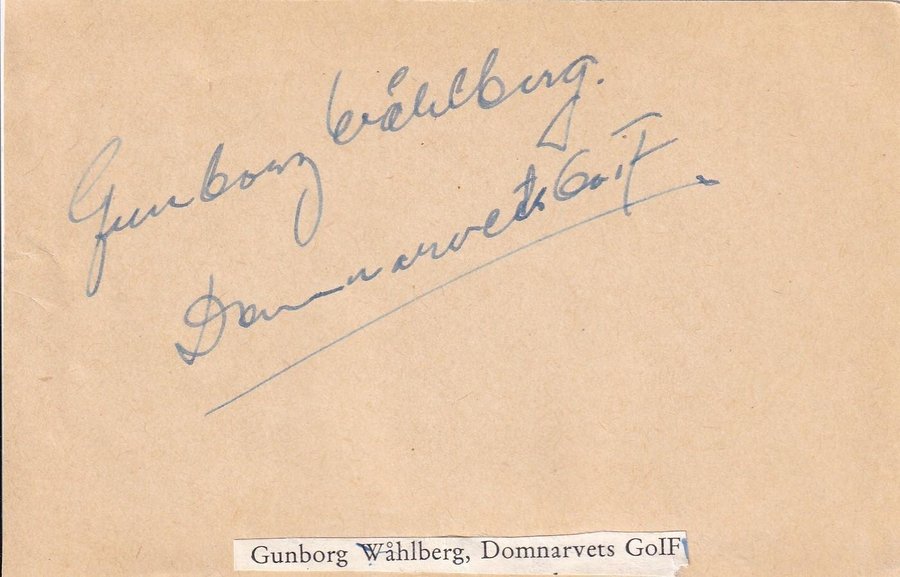 Gunborg Wåhlberg.
Domnarvets GoIF.
Gunborg Wåhlberg, Domnarvets GoIF